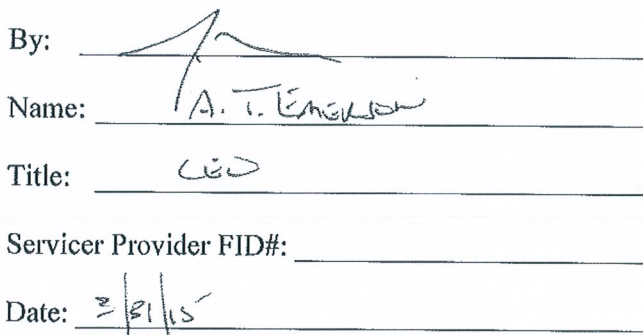 By:
Name: A. T. EMERSON
Title: CEO
Servicer Provider FID#:
Date: 3/31/15